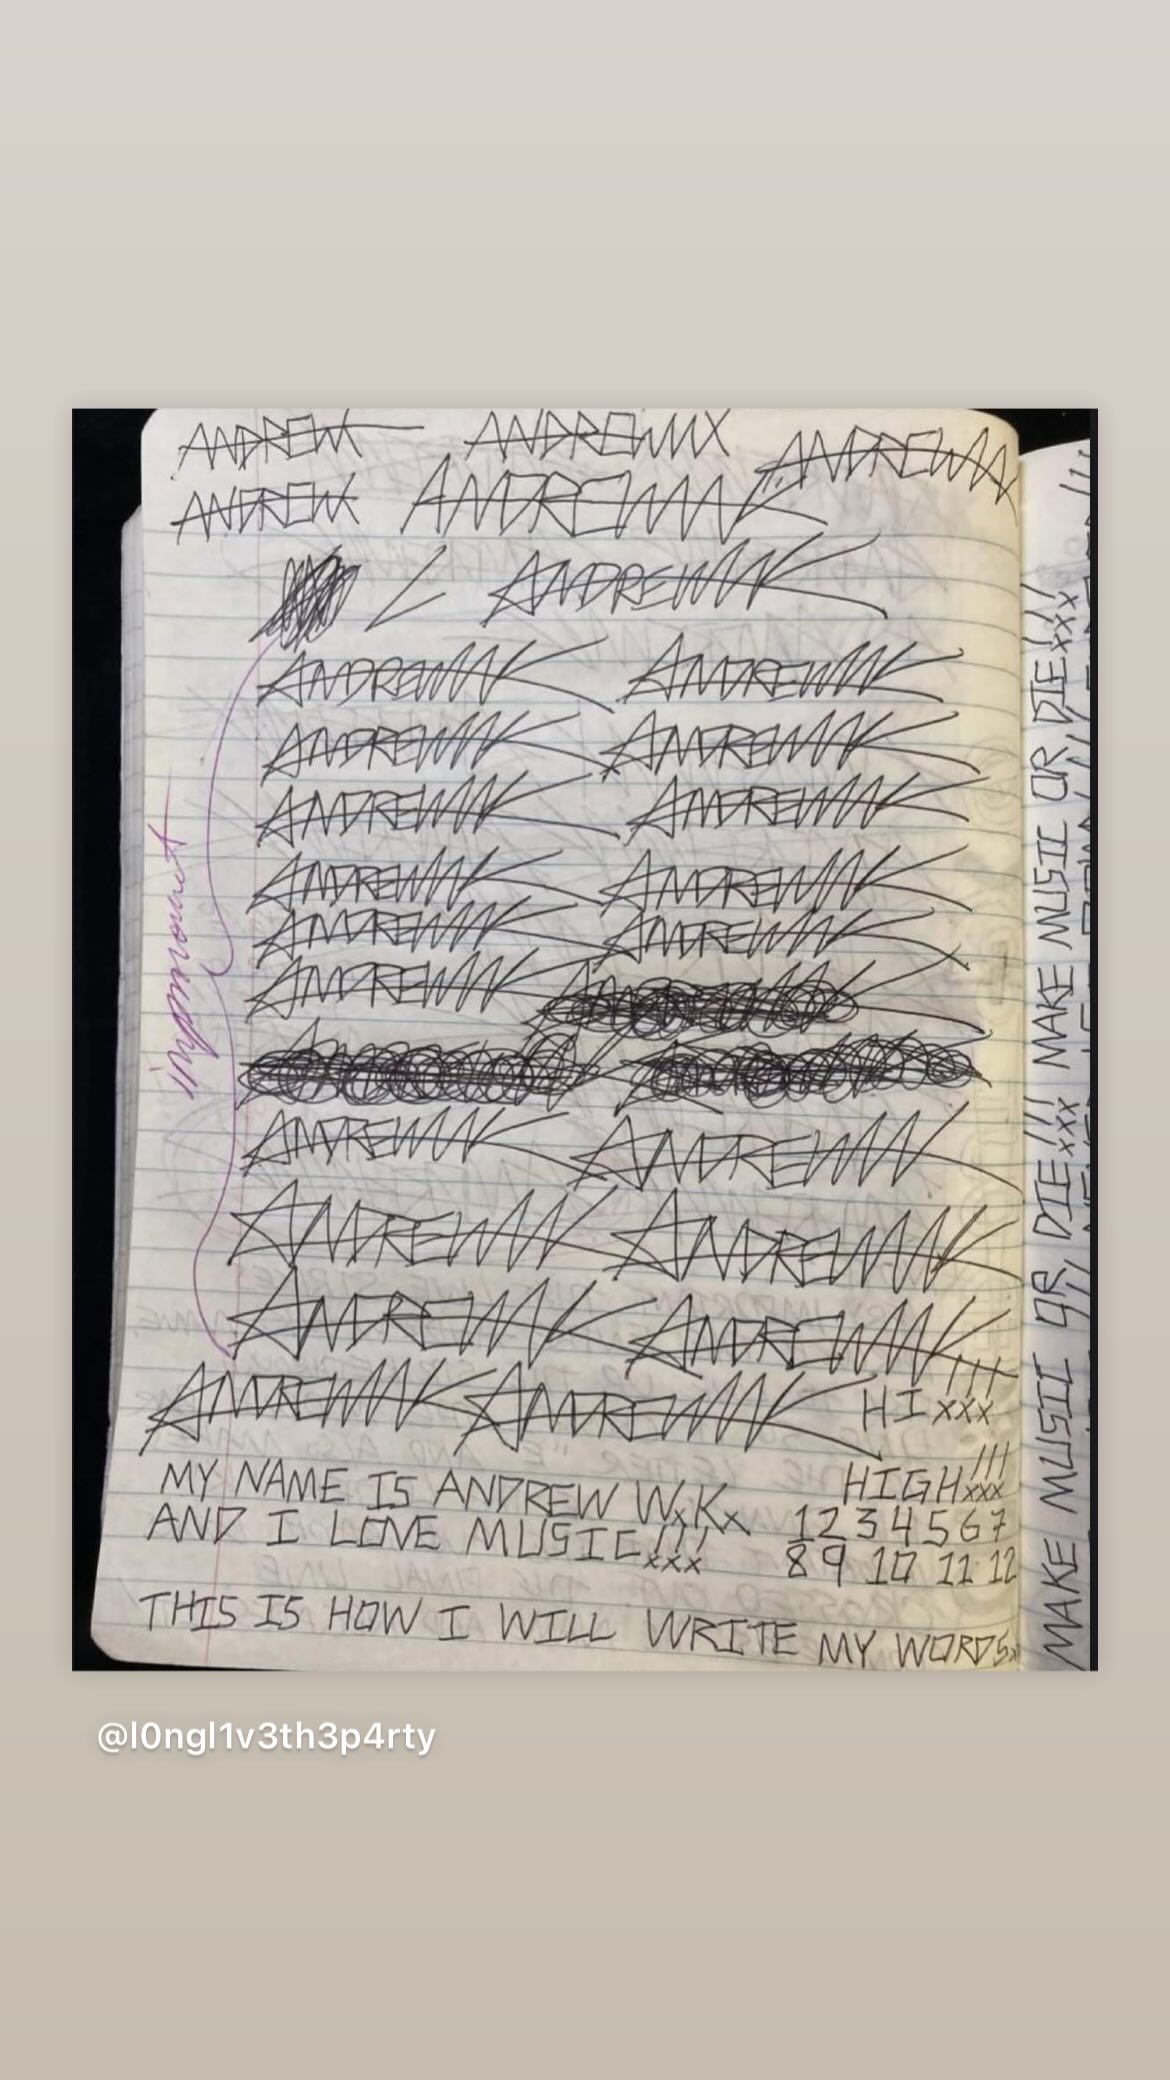 ANDREWK ANDREWWX ANDREWK
ANDREWK ANDREWWK
ANDREWWK
ANDREWWK ANDREWWK
ANDREWWK ANDREWWK
ANDREWWK ANDREWWK
ANDREWWK ANDREWWK
ANDREWWK ANDREWWK
ANDREWWK
ANDREWWK ANDREWWK
ANDREWWK ANDREWWK
ANDREWWK ANDREWWK
ANDREWWK ANDREWWK HI!!!xxx
important
MY NAME IS ANDREW WxKx HIGH!!!xxx
AND I LOVE MUSIC!!!xxx 1 2 3 4 5 6 7
8 9 10 11 12
THIS IS HOW I WILL WRITE MY WORDS.x
MAKE MUSIC OR DIE!!!xxx MAKE MUSIC OR DIE!!!xxx
@l0ngl1v3th3p4rty